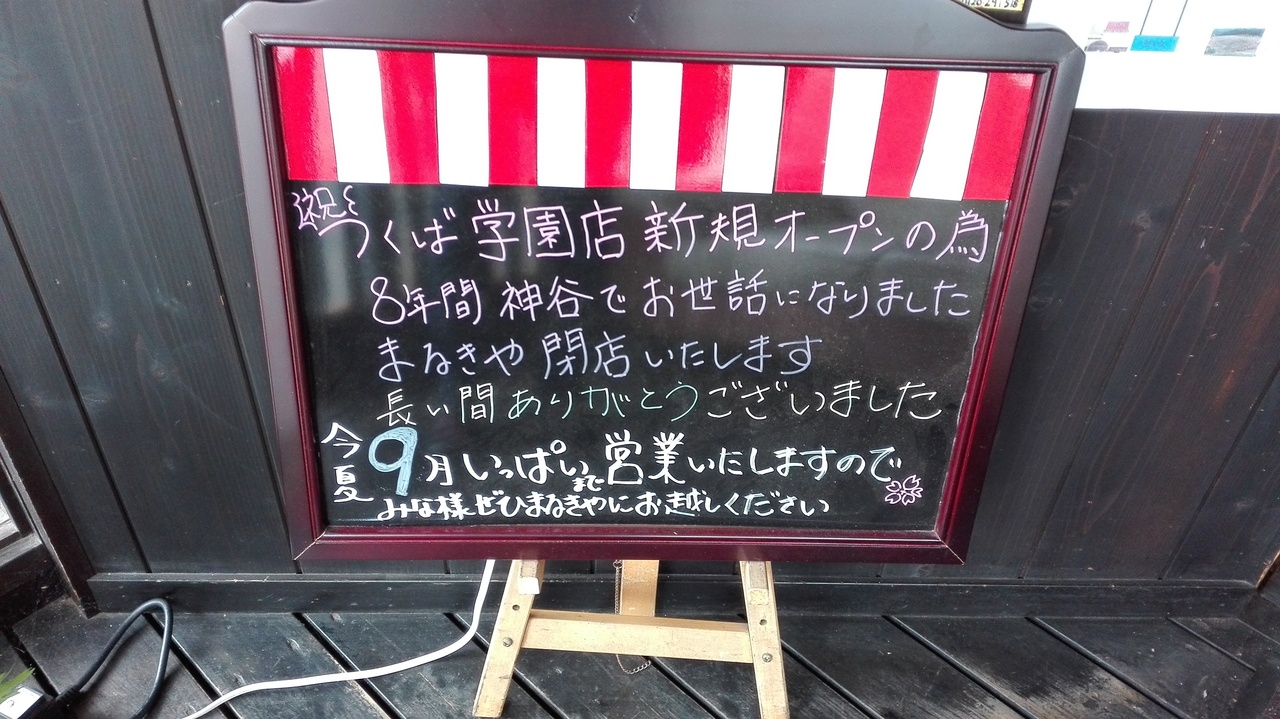 祝 つくば学園店 新規オープンの為
8年間 神谷でお世話になりました
まるきや 閉店いたします
長い間ありがとうございました
今夏 9月いっぱいまで営業いたしますので
みな様ぜひまるきやにお越しください